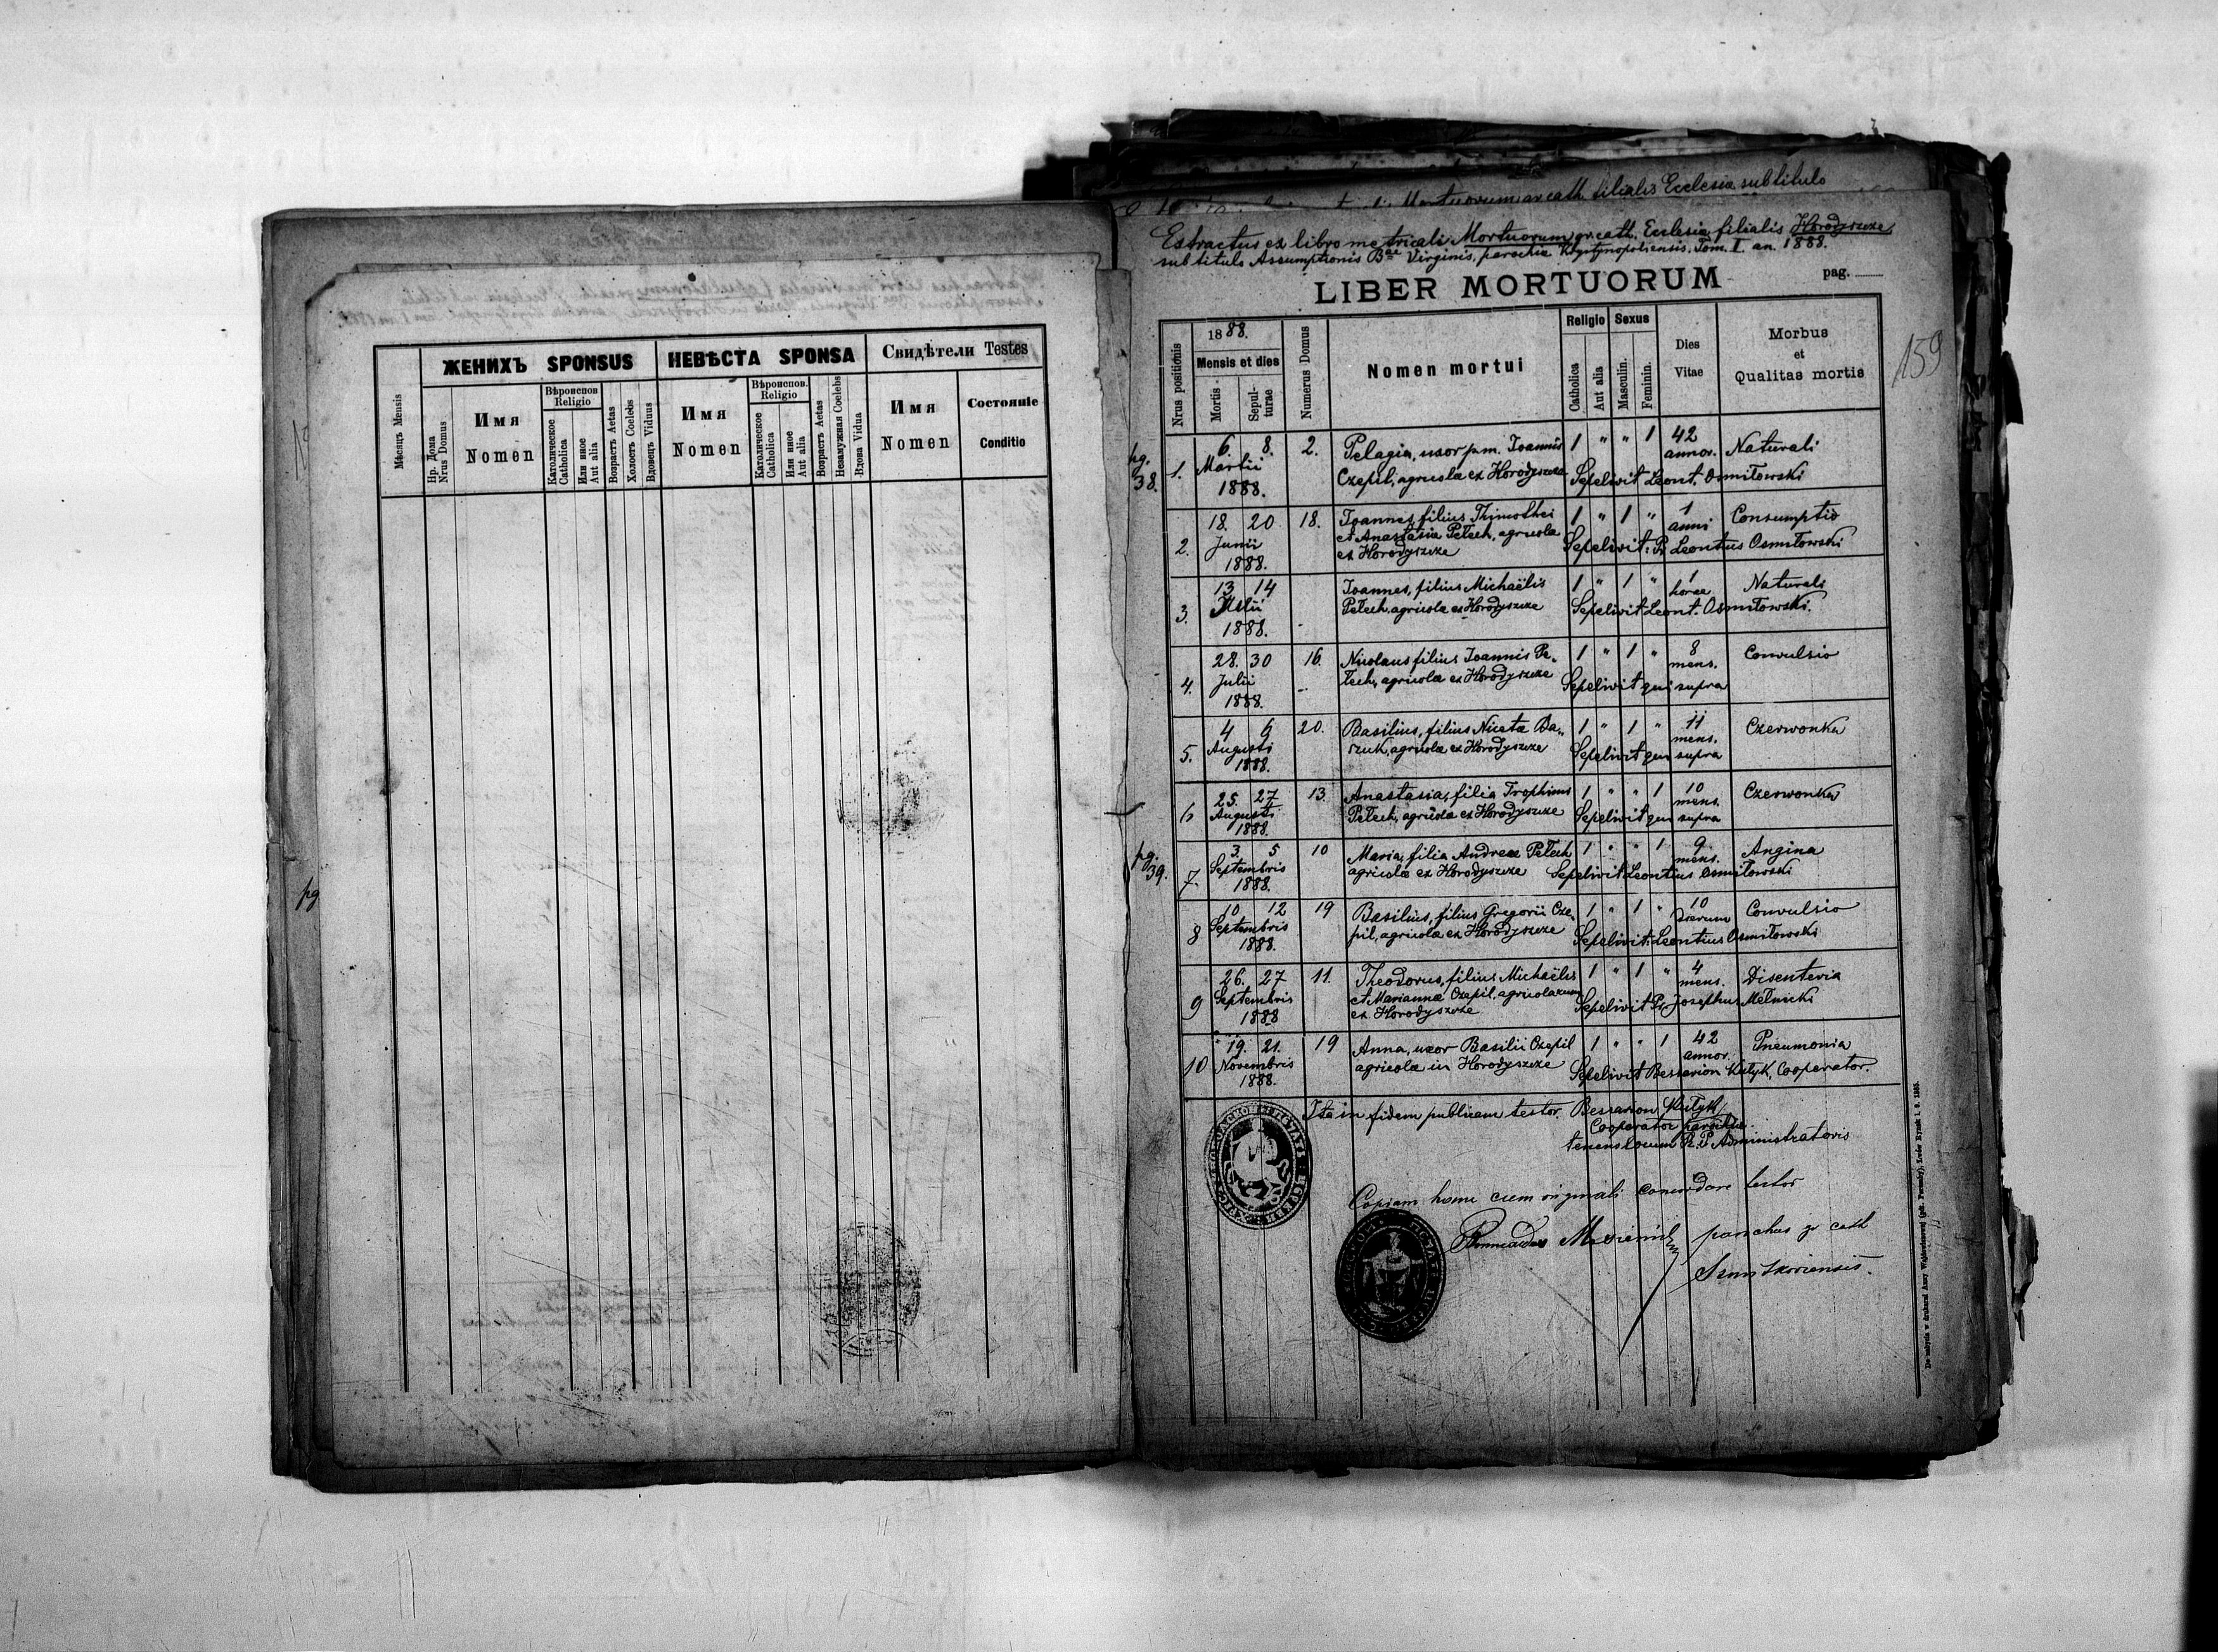 ЖЕНИХЪ SPONSUS
НЕВѢСТА SPONSA
Свидѣтели Testes
Мѣсяцъ Mensis
Нр. Дома
Nrus Domus
Имя
Nomen
Вѣроиспов
Religio
Католическое
Catholica
Или иное
Aut alia
Возрастъ Aetas
Холостъ Coelebs
Вдовецъ Viduus
Имя
Nomen
Вѣроиспов.
Religio
Католическое
Catholica
Или иное
Aut alia
Возрастъ Aetas
Незамужная Coelebs
Вдова Vidua
Имя
Nomen
Состояніе
Conditio
pg
Extractus ex libro metricali Mortuorum gr. cath. Ecclesiæ filialis Horodyszcze
sub titulo Assumptionis Bae Virginis, parochiæ Krystynopoliensis. Tom. I. an. 1888.
LIBER MORTUORUM
pag.
159
Nrus positionis
1888.
Mensis et dies
Mortis
Sepulturae
Numerus Domus
Nomen mortui
Religio
Catholica
Aut alia
Sexus
Masculin.
Feminin.
Dies
Vitae
Morbus
et
Qualitas mortis
pg. 38.
1. 6. 8. 2. Pelagia, uxor p.m. Joannis 1 " " 1 42 annor. Naturali
Martii 1888. Czepil, agricolæ ex Horodyszcze Sepelivit Leont. Osmiłowski
2. 18. 20 18. Joannes, filius Timothei 1 " 1 " 1 anni Consumptio
Junii et Anastasiæ Pełech, agricolæ Sepelivit: P. Leontius Osmiłowski
1888. ex Horodyszcze
3. 13 14 Joannes, filius Michaëlis 1 " 1 " 1 horæ Naturali
Julii Pełech, agricolæ ex Horodyszcze Sepelivit Leont. Osmiłowski.
1888.
4. 28. 30 16. Nicolaus filius Joannis Pe- 1 " 1 " 8 mens. Convulsio
Julii łech, agricolæ ex Horodyszcze Sepelivit qui supra
1888.
5. 4 6 20. Basilius, filius Nicetæ Da- 1 " 1 " 11 mens. Czerwonka
Augusti szuk, agricolæ ex Horodyszcze Sepelivit qui supra
1888.
6 25. 27 13. Anastasia, filia Trophimi 1 " " 1 10 mens. Czerwonka
Augusti Pełech, agricolæ ex Horodyszcze Sepelivit qui supra
1888.
pg. 39.
7. 3. 5 10 Maria, filia Andreæ Pełech 1 " " 1 9 mens. Angina
Septembris agricolæ ex Horodyszcze Sepelivit Leontius Osmiłowski
1888.
8 10 12 19 Basilius, filius Gregorii Cze- 1 " 1 " 10 dierum Convulsio
Septembris pil, agricolæ ex Horodyszcze Sepelivit: Leontius Osmiłowski
1888.
9 26. 27 11. Theodorus, filius Michaëlis 1 " 1 " 4 mens. Disenteria
Septembris et Mariannæ Czepil, agricolarum Sepelivit P. Josephus Mełnicki
1888 ex Horodyszcze
10 19. 21. 19 Anna, uxor Basilii Czepil 1 " " 1 42 annor. Pneumonia
Novembris agricolæ in Horodyszcze Sepelivit Bessarion Kutyk, Cooperator.
1888.
Ita in fidem publicam testor. Bessarion Kutyk
Cooperator parochiæ
tenens locum R. P. Administratoris
Copiam hanc cum originali concordare testor
parochus gr cath